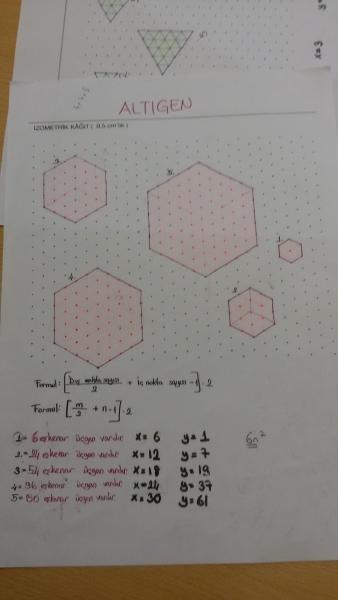 5
x=3
ALTIGEN
İZOMETRİK KAĞIT ( 0,5 cm'lik )
3
5
1
4
2
Formül: [Dış nokta sayısı / 2 + iç nokta sayısı - 1] . 2
Formül: [m / 2 + n - 1] . 2
1= 6 eşkenar üçgen vardır x= 6 y= 1 6n²
2= 24 eşkenar üçgen vardır x= 12 y= 7
3= 54 eşkenar üçgen vardır x= 18 y= 19
4= 96 eşkenar üçgen vardır x= 24 y= 37
5= 150 eşkenar üçgen vardır x= 30 y= 61